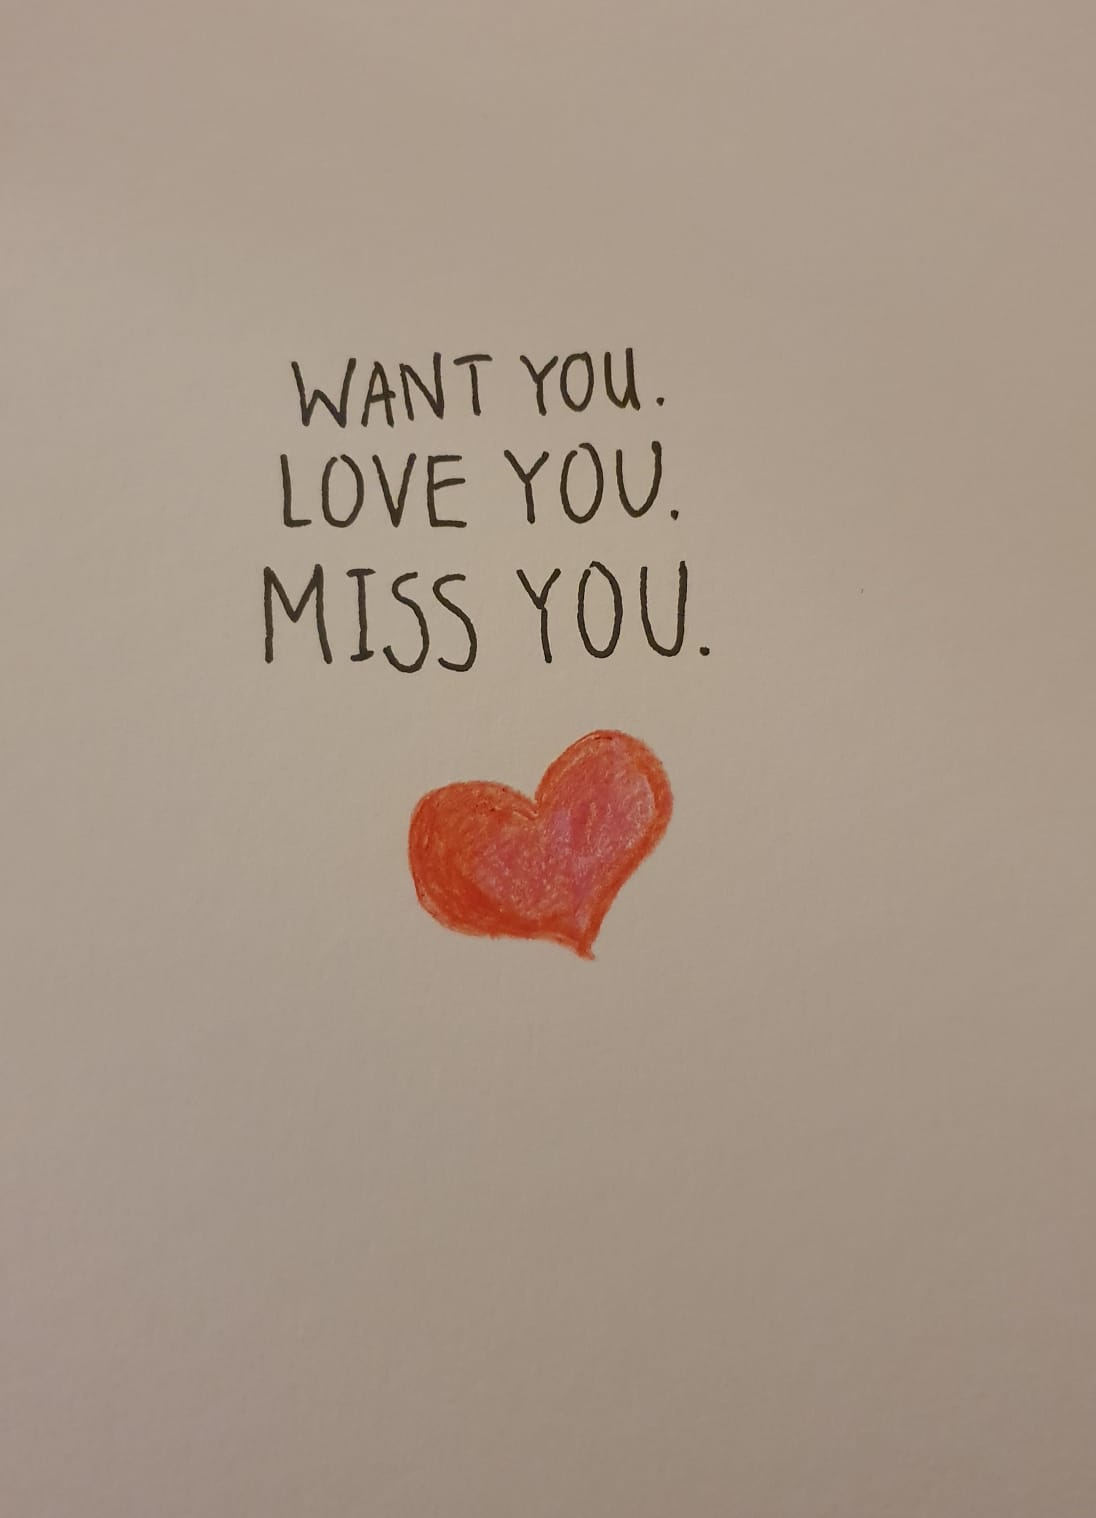 WANT YOU.
LOVE YOU.
MISS YOU.